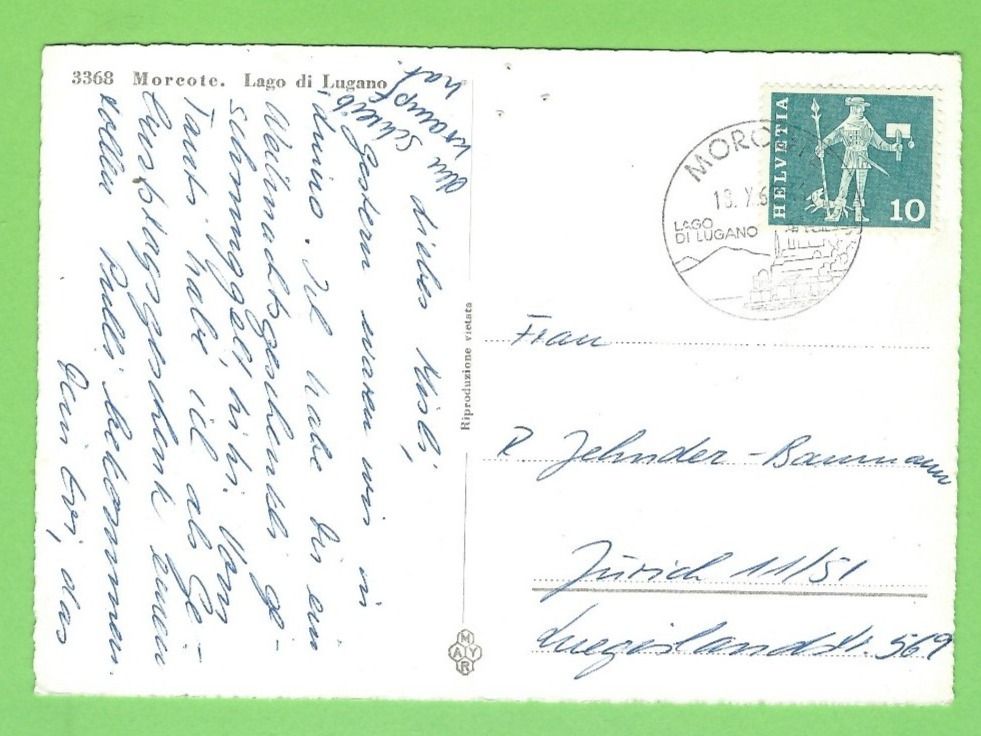 3368 Morcote. Lago di Lugano
Liebes Rösli,
Gestern waren wir in
Luino. Ich habe Dir ein
Weihnachtsgeschenkli ge-
schmuggelt, hihi. Vom
Tanti habe ich als Ge-
burtstagsgeschenk einen
tollen Pulli bekommen.
Dein Evi, das
den Schreib
krampf
hat.
Riproduzione vietata
MAYR
MORCOTE
13. X. 6
LAGO
DI LUGANO
HELVETIA
10
Frau
R Zehnder-Baumann
Zürich 11/51
Luegislandstr. 569